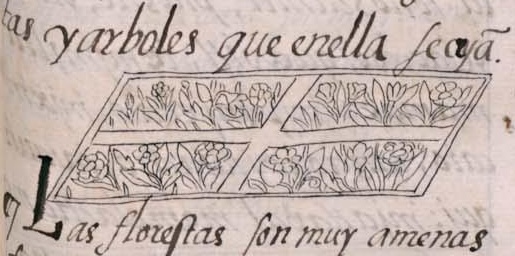 tas yarboles que enella se crã.
¶ Las florestas son muy amenas